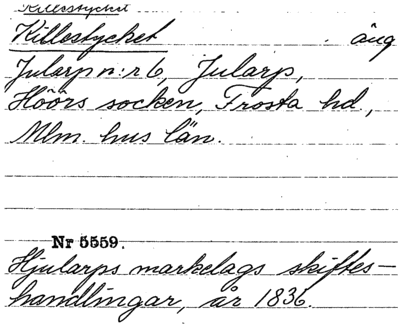 Killestycket
Killestycket äng
Jularp n:r 6, Jularp,
Höörs socken, Frosta hd,
Mlm. hus län.
Nr 5559.
Hjularps markelags skiftes-
handlingar, år 1836.